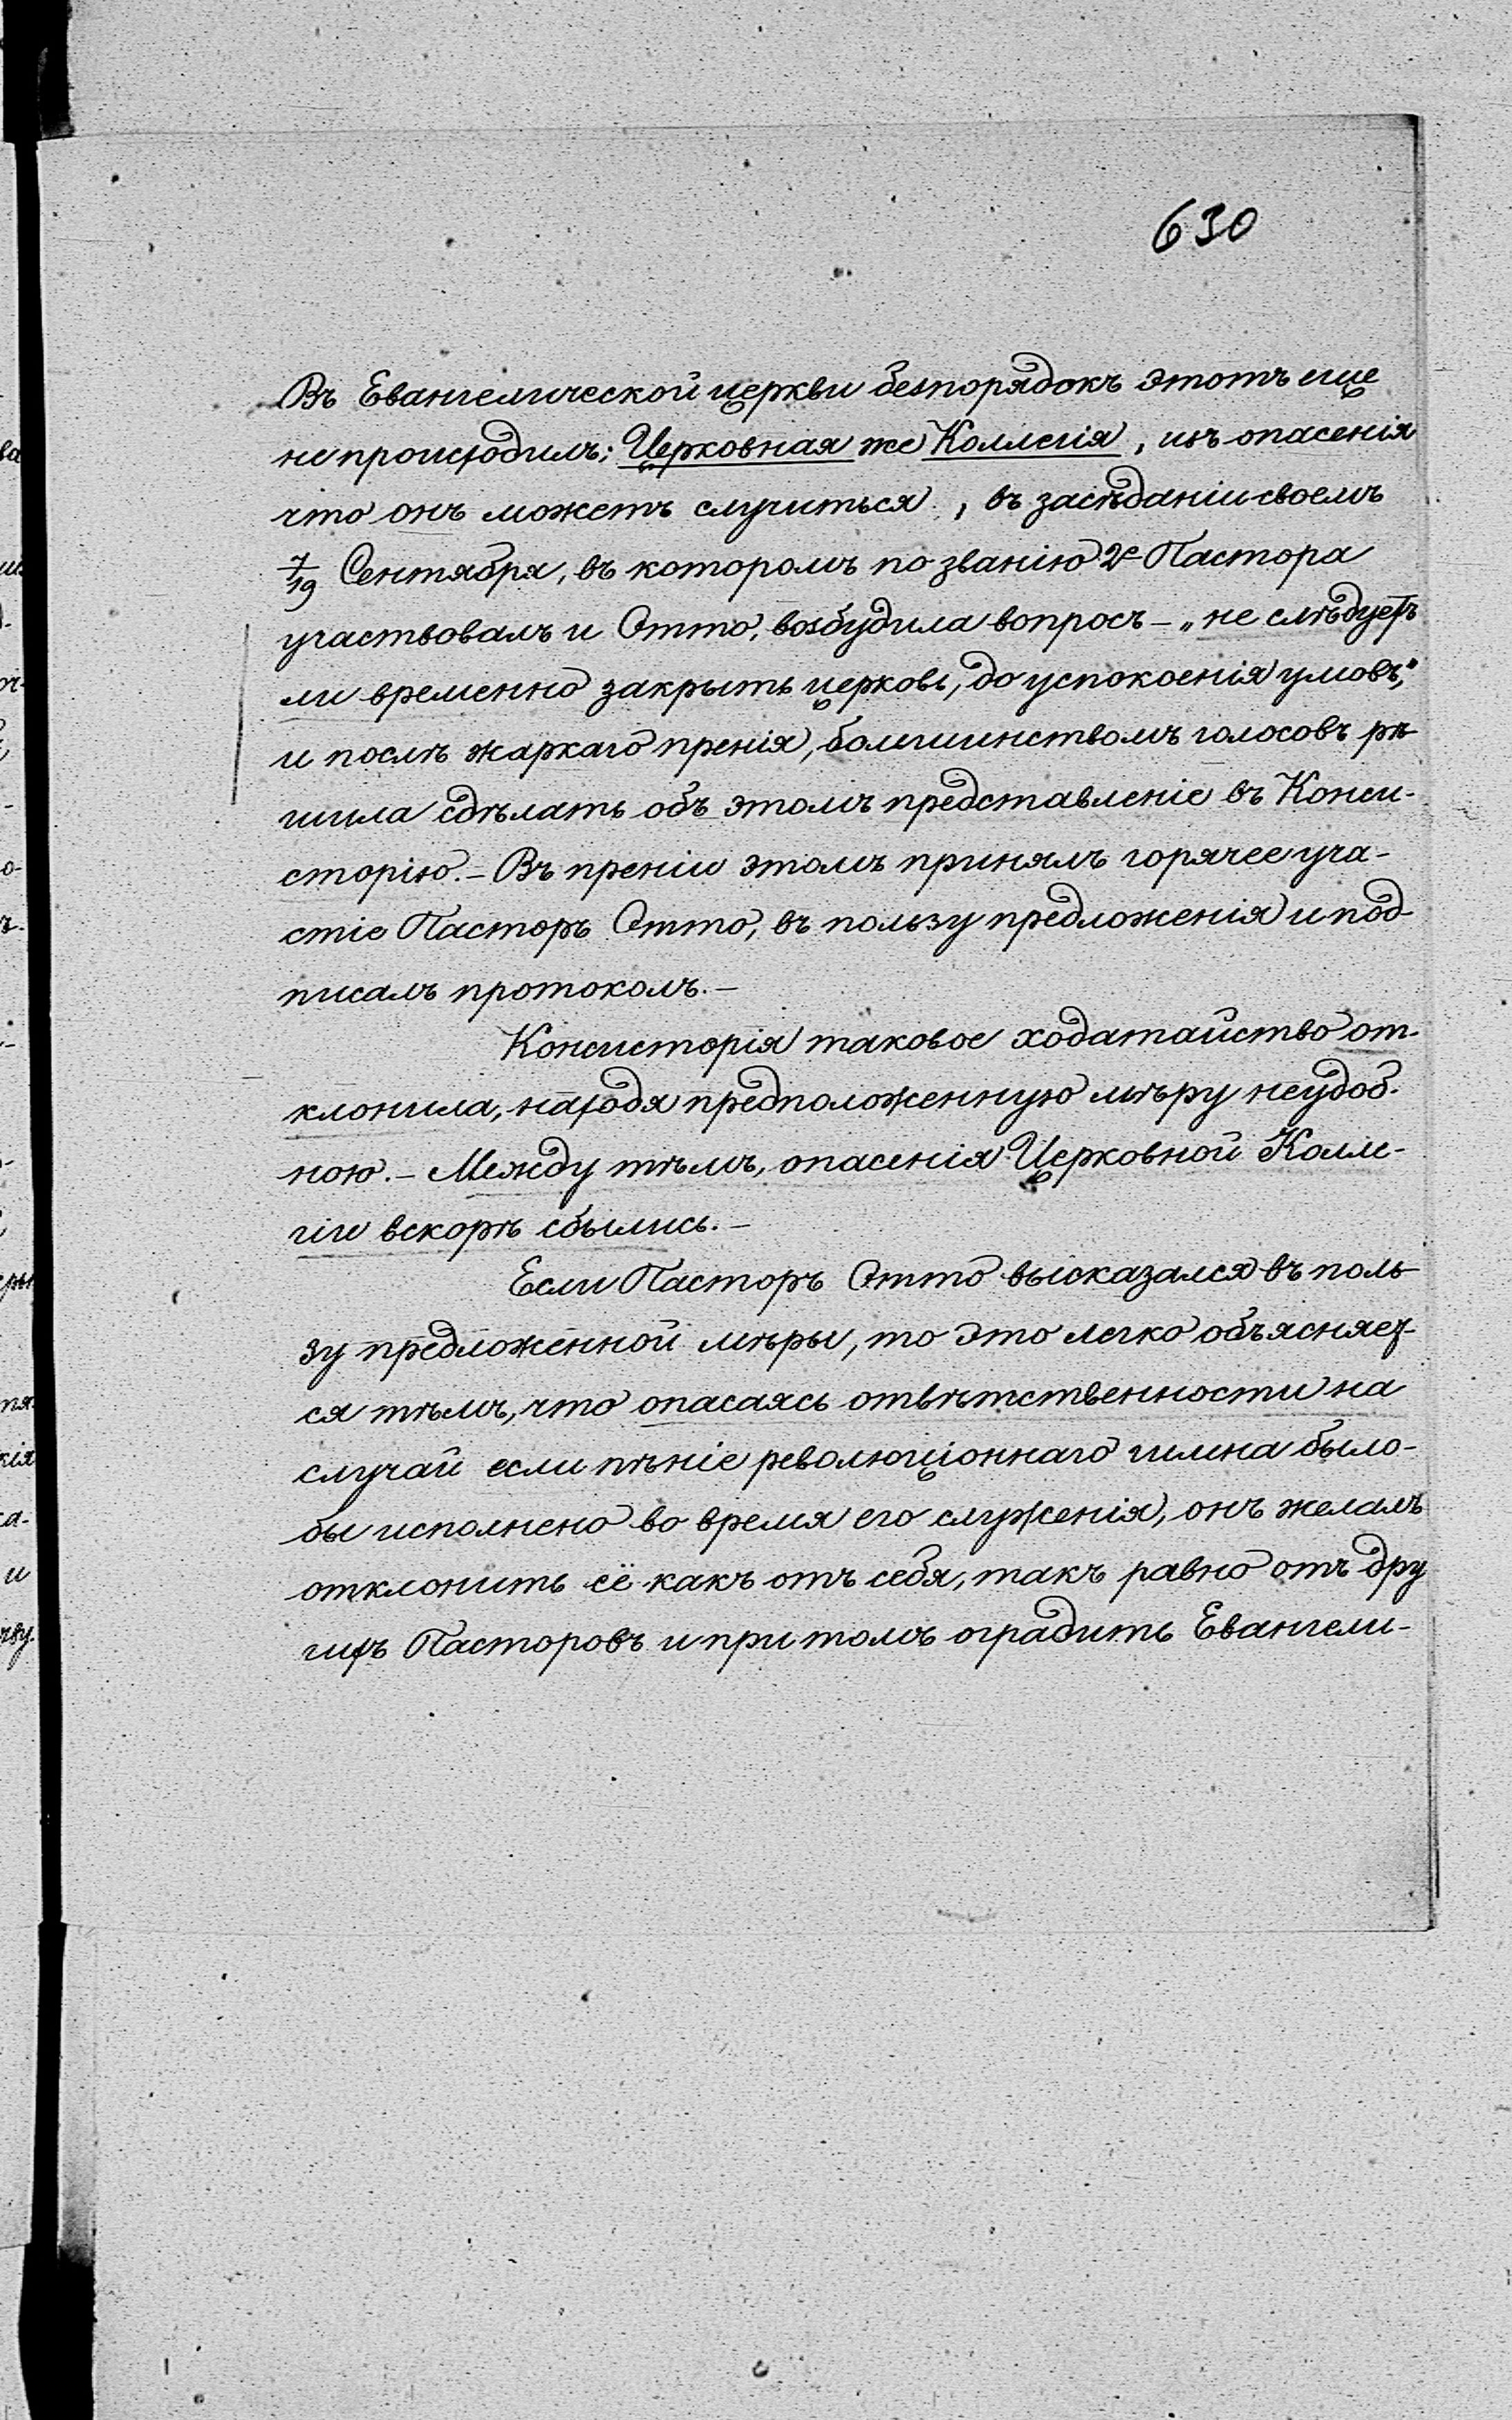 630
Въ Евангелической церкви безпорядокъ этотъ еще
не происходилъ; Церковная же Коллегія, изъ опасенія
что онъ можетъ случиться, въ засѣданіи своемъ
7/19 Сентября, въ которомъ по званію 2е Пастора
участвовалъ и Отто, возбудила вопросъ - „не слѣдуетъ
ли временно закрыть церковь, до успокоенія умовъ,"
и послѣ жаркаго пренія, большинствомъ голосовъ рѣ-
шила сдѣлать объ этомъ представленіе въ Конси-
сторію. - Въ преніи этомъ принялъ горячее уча-
стіе Пасторъ Отто, въ пользу предложенія и под-
писалъ протоколъ. -
Консисторія таковое ходатайство от-
клонила, находя предположенную мѣру неудоб-
ною. - Между тѣмъ, опасенія Церковной Колле-
гіи вскорѣ сбылись. -
Если Пасторъ Отто высказался въ поль-
зу предложенной мѣры, то это легко объясняет-
ся тѣмъ, что опасаясь отвѣтственности на
случай если пѣніе революціоннаго гимна было-
бы исполнено во время его служенія, онъ желалъ
отклонить её какъ отъ себя, такъ равно отъ дру
гихъ Пасторовъ и при томъ оградить Евангели-